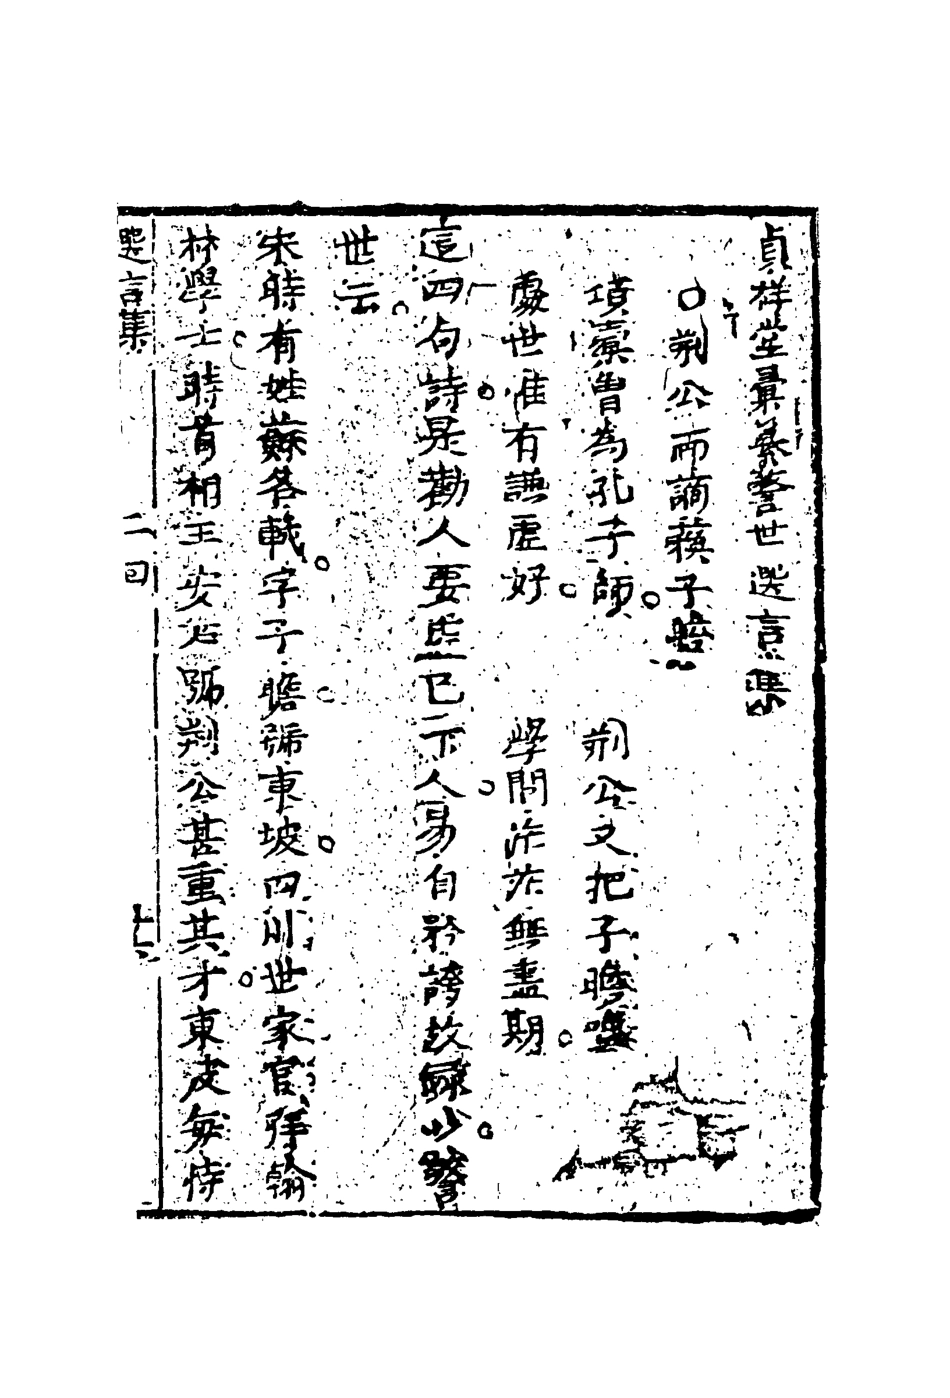 貞祥堂彙纂警世選言集
○荊公兩謫蘇子瞻
項橐曽為孔子師 荊公又把子瞻嗤
處世惟有謙虚好 學問茫茫無盡期
這四句詩是勸人要虛己下人易自矜誇故録以警
世云
宋時有姓蘇名軾字子瞻號東坡四川世家官拜翰
林學士時首相王安石號荆公甚重其才東皮每恃
選言集 二回 十二